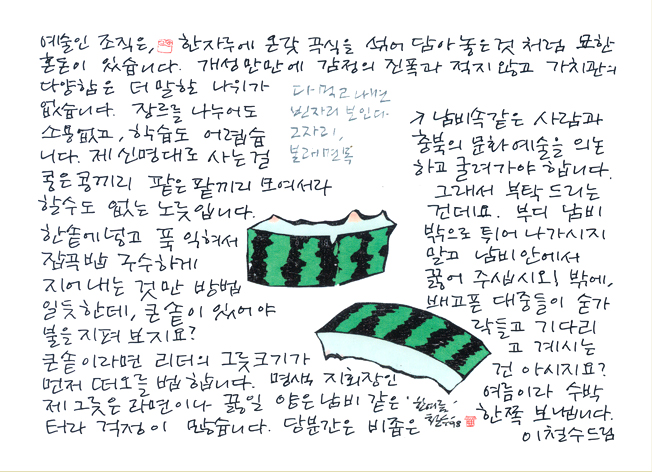 예술인 조직은, 한자루에 온갖 곡식을 섞어 담아 놓은것 처럼 묘한
혼돈이 있습니다. 개성만만에 감정의 진폭과 적지않고 가치관의
다양함은 더 말할 나위가
없습니다. 장르를 나누어도
소용없고, 학습도 어렵습
니다. 제 신명대로 사는걸
콩은 콩끼리 팥은 팥끼리 모여서라
할수도 없는 노릇입니다.
한솥에넣고 푹 익혀서
잡곡밥 구수하게
지어내는 것만 방법
일듯한데, 큰솥이 있어야
불을지펴 보지요?
큰솥이라면 리더의 그릇크기가
먼저 떠오를 법 합니다. 명색 지회장인
제 그릇은 라면이나 끓일 양은냄비 같은
터라 걱정이 많습니다. 당분간은 비좁은
다 먹고 나면
빈자리 보인다.
그자리,
본래면목
냄비속같은 사람과
충북의 문화예술을 의논
하고 굴려가야 합니다.
그래서 부탁 드리는
건데요. 부디 냄비
밖으로 튀어 나가시지
말고 냄비안에서
끓어 주십시오! 밖에,
배고픈 대중들이 숟가
락들고 기다리
고 계시는
건 아시지요?
여름이라 수박
한쪽 보냅니다.
이철수드림
'한여름'
철수98